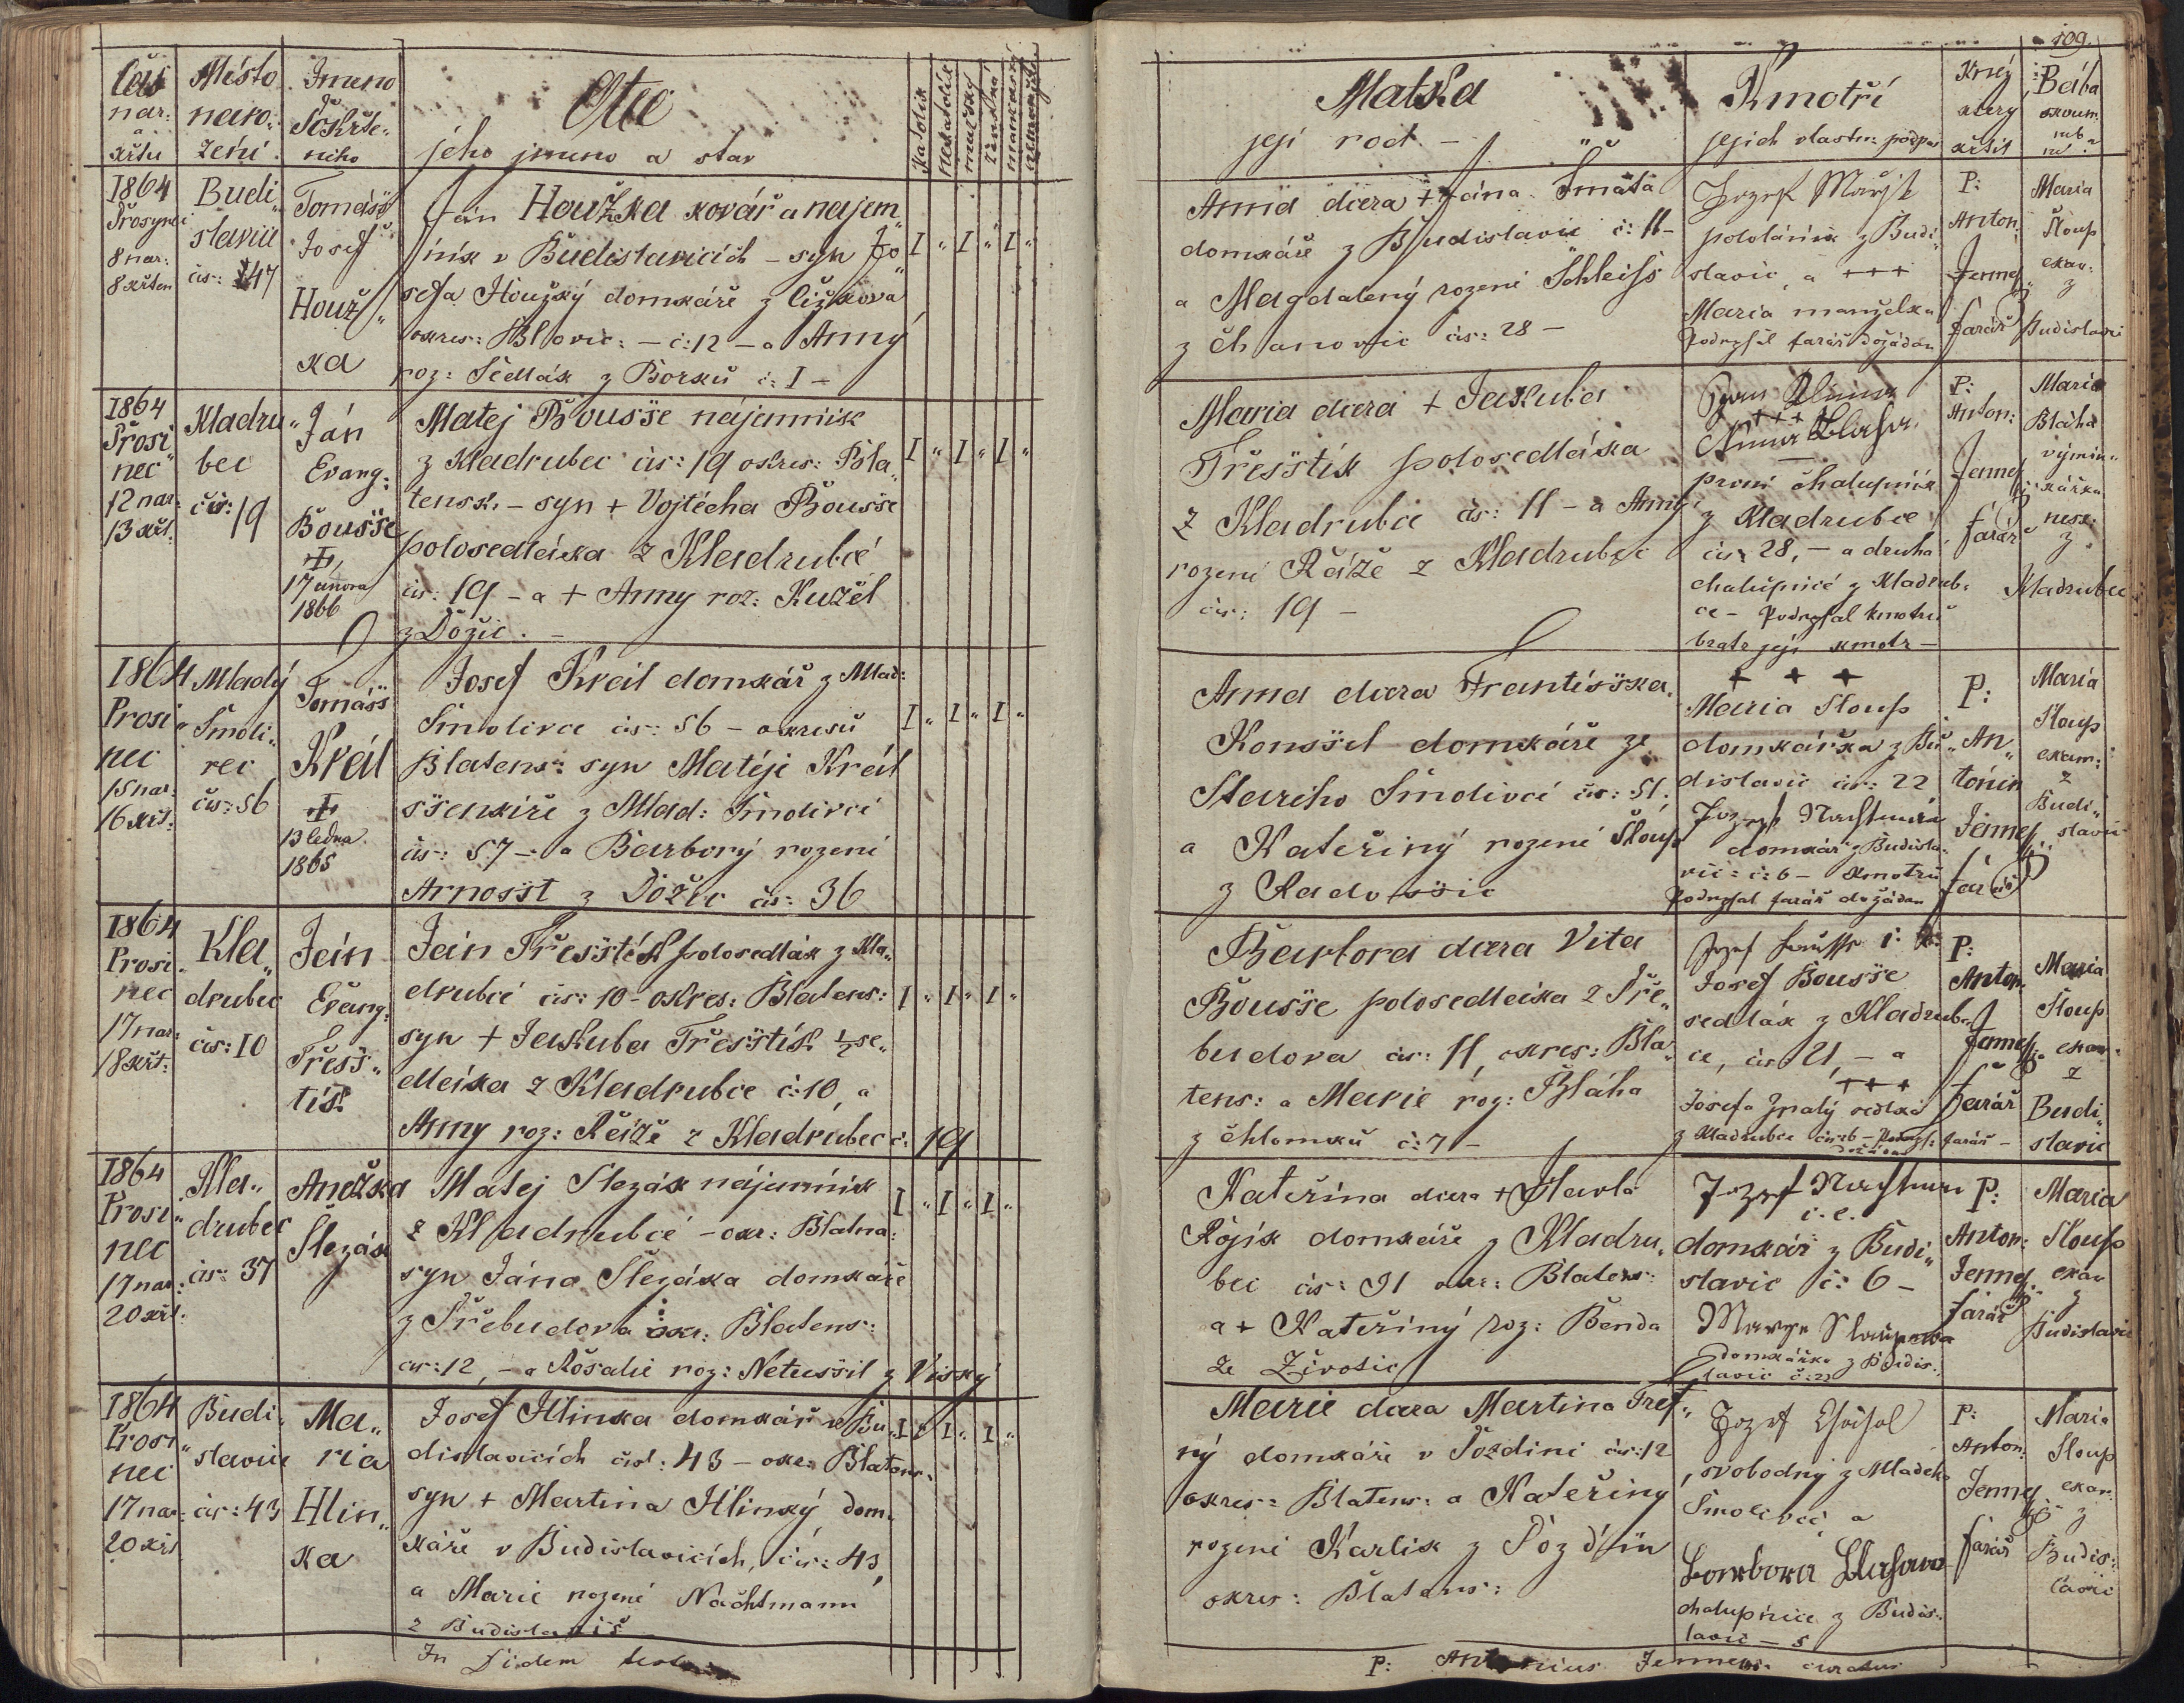 čas
nar:
a
křtu
Místo
naro-
zení
Jmeno
Pokřtě-
ného
Otec
jeho jmeno a stav
katolík
nekatolík
mužský
ženská
manželský
109.
Matka
její rod –
Kmotři
jejich vlastn: podpis
Kněz
který
křtil
Bába
skoum:
neb
ne
1864
Prosync:
8 nar:
8 křten
Budi„
slavice
čis: 47
Tomášš
Josef
Houž„
ka
Ján Houžka kovář a nájem„
ník v Budislavicích – syn Jo„
sefa Houžký domkáře z Čížkova
okres: Blovic: – č: 12 – a Anny
roz: Sedlák z Borků č: I –
I „ I „ I „
Anna dcera + Jána Smata
domkáře z Budislavic č: 11 –
a Magdalený rozené Schleiss
z Chanovic čis: 28 –
pololáník z Budi„
slavic, a +++
Maria manželka
Podepsal farář dožádán
P:
Anton:
Jenney
farář
Maria
Sloup
exam:
z
Budislavic
1864
Prosi„
nec
12 nar:
13 křt:
Kladru„
bec
čis: 19
Ján
Evang:
Boušše
17 února
1866
Matej Boušše nájemník
z Kladrubec čis: 19 okres: Bla„
tensk. – syn + Vojtěcha Boušše
polosedláka z Kladrubcé
čis: 19 – a + Anny roz: Kuzel
z Dožic. –
I „ I „ I „
Maria dcera + Jakuba
Třešštík polosedláka
z Kladrubce čis: 11 – a Anny
rozené Ráže z Kladrubec
čis: 19 –
+++
Anna Blaha
první chalupník
z Kladrubce
čis: 28, – a druhá
chalupnicé z Kladrub:
ce – Podepsal kmotru
bratr její kmotr –
P:
Anton:
Jenney
farář
Maria
Bláha
výmin„
kářka
nesk:
z
Kladrubec
1864
Prosi„
nec
15 nar:
16 křt:
Mladý
Smoli„
vec
čis: 56
Tomášš
Král
13 ledna
1865
Josef Král domkář z Mlad:
Smolivce čis: 56 – okresů
Blatens: syn Matěje Král
ššenkíře z Mlad: Smolivcé
čis: 57 – a Barborý rozené
Arnosšt z Dožic čis: 36
I „ I „ I „
Anna dcera Františška
Konššel domkáře ze
Starého Smolivcé čis: 51:
a Kateřiný rozené Sloup
z Radošsic
+ + +
Maria Sloup
domkářka z Bu„
dislavic čis: 22
domkář z Budisla„
vic: č: 6 – Kmotru
Podepsal farář dožádán
P:
An„
tonín
Jenney
farář
Maria
Sloup
exam:
z
Budi„
slavic
1864
Prosi„
nec
17 nar:
18 křt:
Kla„
drubec
čis: 10
Ján
Evang:
Třešš„
tík
Ján Třešštík polosedlák z Kla„
drubcé čis: 10 – okres: Blatens:
syn + Jakuba Třešštík ½ se„
dláka z Kladrubce č: 10, a
Anny roz: Ráže z Kladrubec č: 19
I „ I „ I „
Barbora dcera Vita
Boušse polosedláka z Tře„
budova čis: 11, okres: Bla„
tens: a Marie roz: Bláha
z Chlomků č: 7 –
Josef Boušse
sedlák z Kladrub„
ce, čis 21, – a
+++
z Kladrubce
P:
Anton:
Jenney
farář
Maria
Sloup
exam:
z
Budi„
slavic
1864
Prosi„
nec
17 nar:
20 křt:
Kla„
drubec
čis: 37
Anežka
Slezák
Matej Slezák nájemník
z Kladrubcé – okr: Blatna:
syn Jána Slezáka domkáře
z Třebudova okr: Blatens:
čis: 12, – a Rosalie roz: Netuššil z Visky
I „ I „ I „
Kateřina dcera + Pavla
Rojík domkáře z Kladru„
bec čis: 31 okr: Blatens:
a + Kateřiný roz: Benda
ze Životic
domkář z Budi„
slavic č: 6 –
domkářka z Budis„
lavic č: 22
P:
Anton:
Jenney
farář
Maria
Sloup
exam
z
Budislavic
1864
Prosi„
nec
17 nar:
20 křt
Budi„
slavice
čis: 43
Ma„
ria
Hlin„
ka
Josef Hlinka domkář v Bu„
dislavicích čis: 43 – okr: Blatens:
syn + Martina Hlinký dom„
káře v Budislavicích, čis: 43,
a Marie rozené Nachtmann
z Budislavic
I „ I „ I „
Marie dcera Martina Tref„
ný domkáře v Pozdini čis: 12
okres: Blatens: a Kateřiny
rozené Karlik z Pozdín
okres: Blatens:
svobodný z Mladeho
Smolivcé a
Barbora Blahova
chalupnice z Budis„
lavic – 5
P:
Anton:
Jenney
farář
Maria
Sloup
exam:
z
Budis„
lavic
In fidem
P: Antonius Jenney curatus